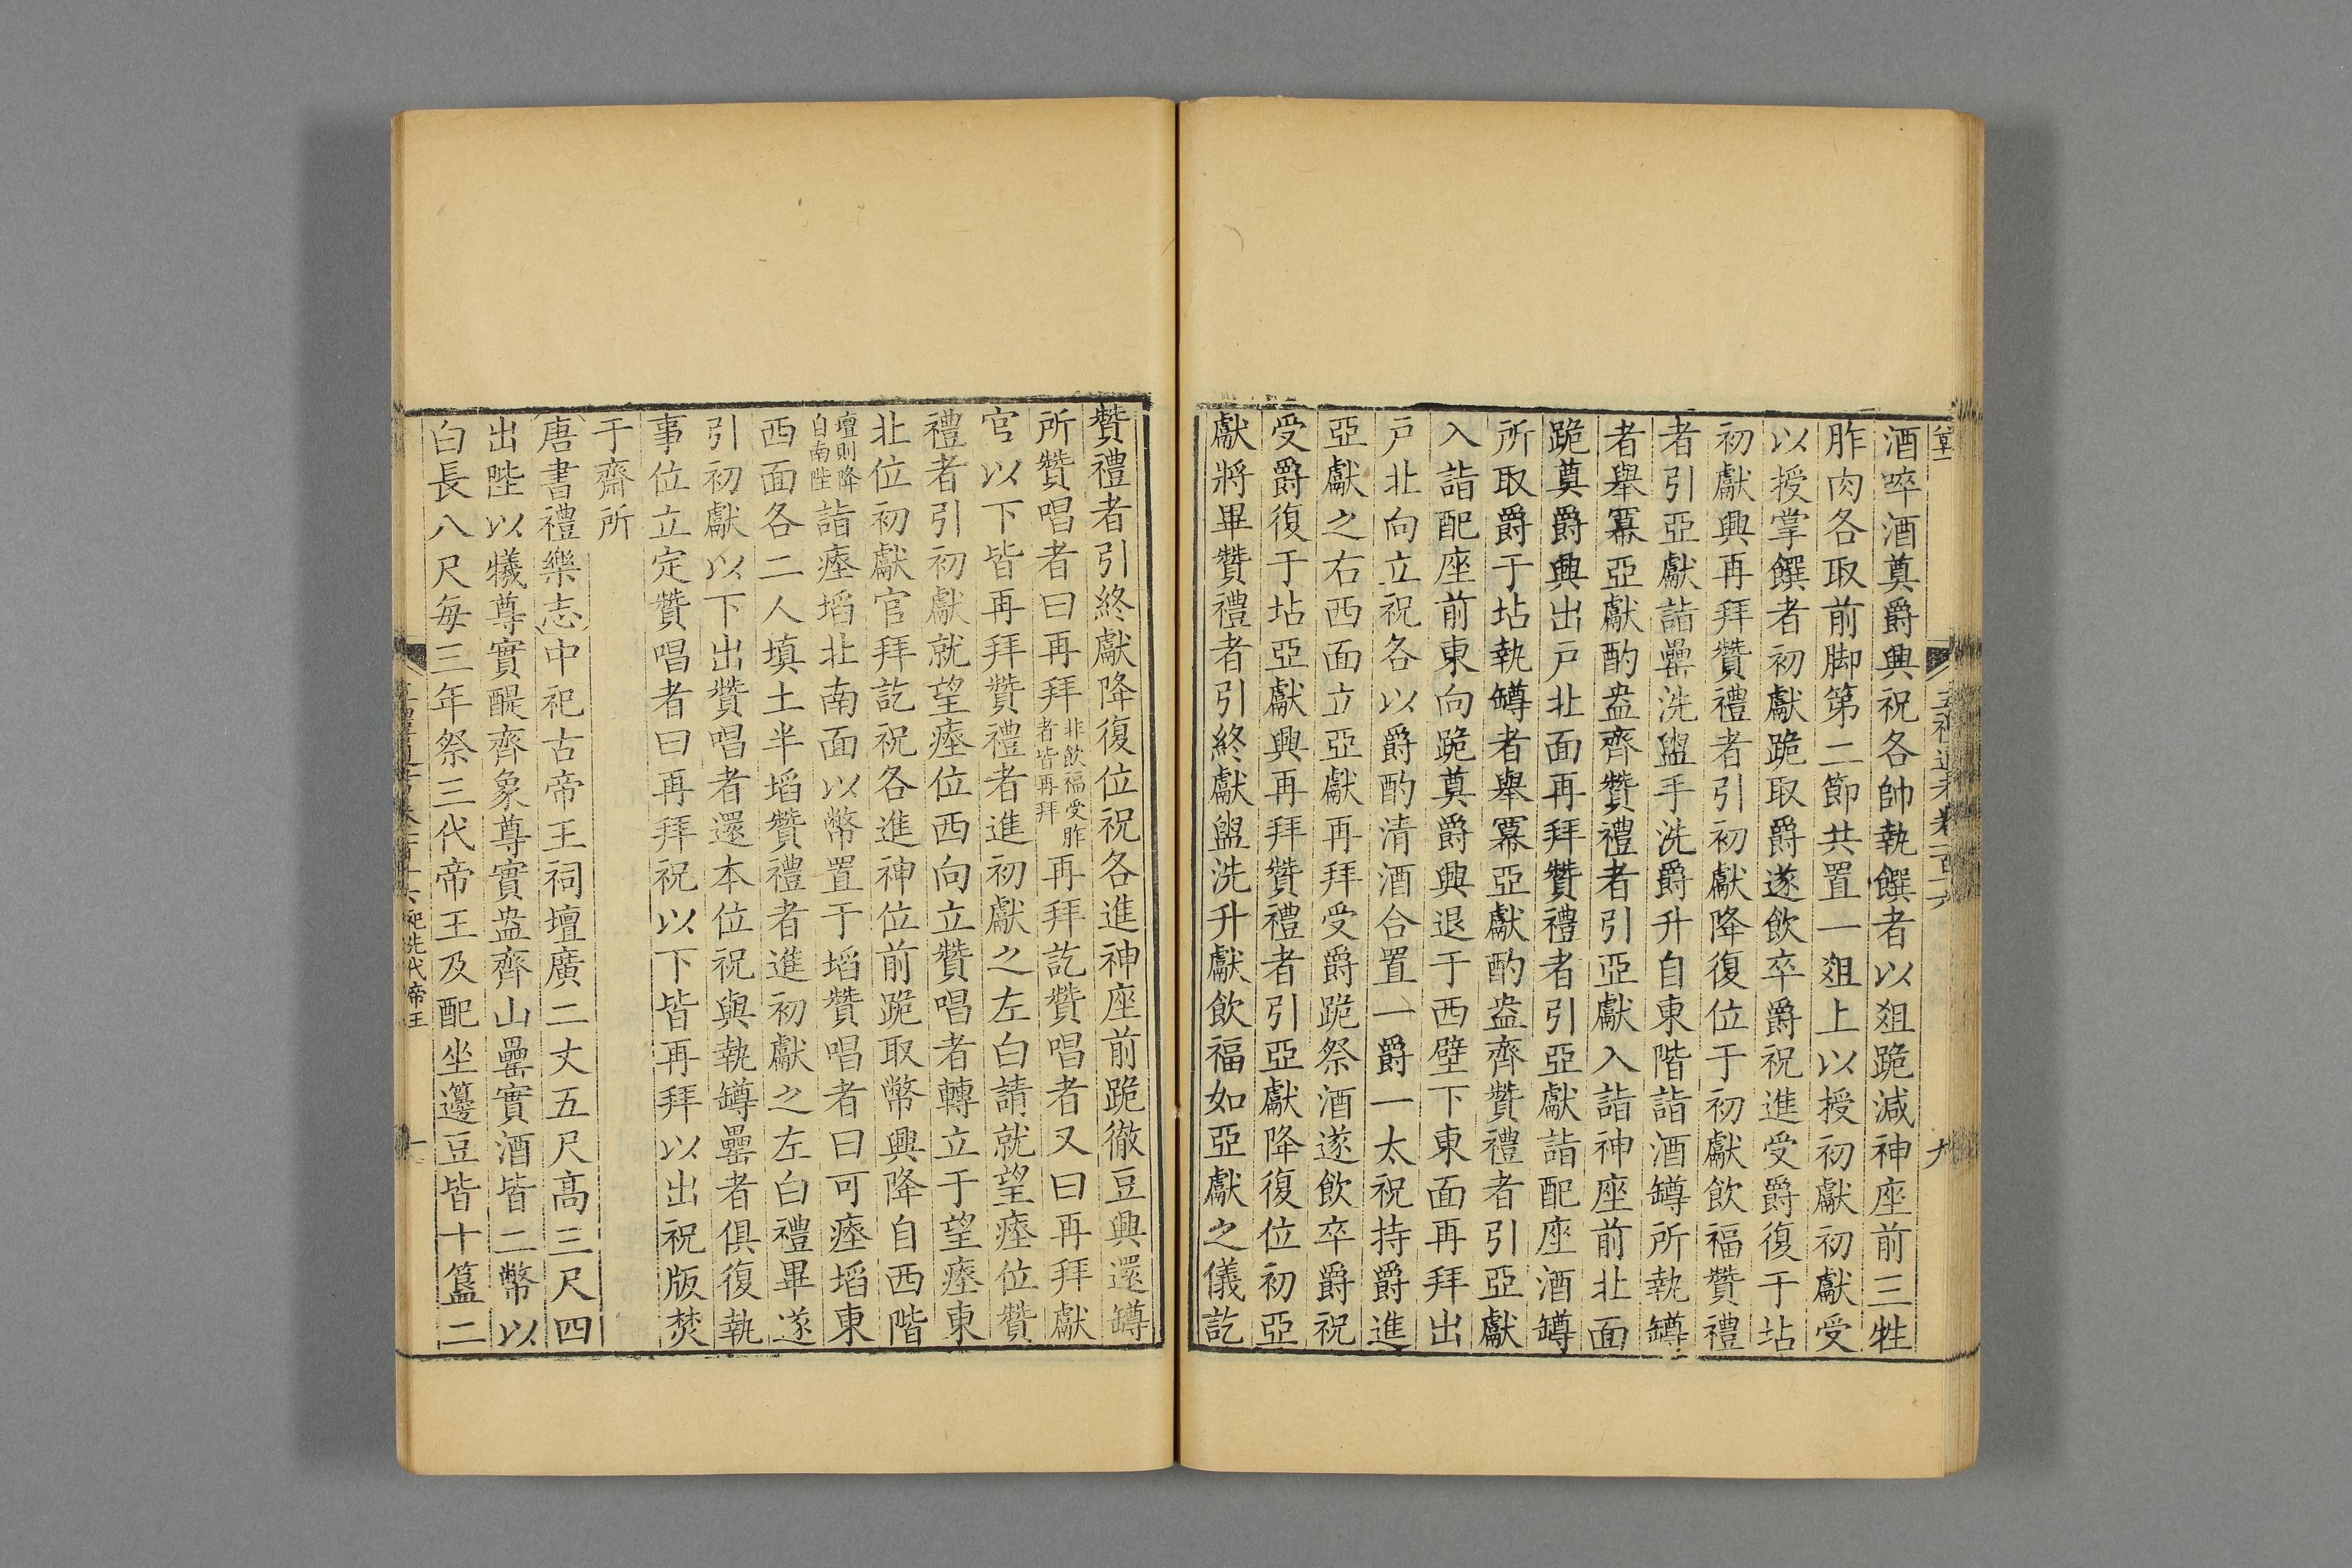 酒啐酒奠爵興祝各帥執饌者以爼跪減神座前三牲
胙肉各取前脚第二節共置一爼上以授初獻初獻受
以授掌饌者初獻跪取爵遂飲卒爵祝進受爵復于坫
初獻興再拜贊禮者引初獻降復位于初獻飲福贊禮
者引亞獻詣罍洗盥手洗爵升自東階詣酒罇所執罇
者舉冪亞獻酌盎齊贊禮者引亞獻入詣神座前北面
跪奠爵興出戸北面再拜贊禮者引亞獻詣配座酒罇
所取爵于坫執罇者舉冪亞獻酌盎齊贊禮者引亞獻
入詣配座前東向跪奠爵興退于西壁下東面再拜出
戸北向立祝各以爵酌清酒合置一爵一太祝持爵進
亞獻之右西面立亞獻再拜受爵跪祭酒遂飲卒爵祝
受爵復于坫亞獻興再拜贊禮者引亞獻降復位初亞
獻將畢贊禮者引終獻盥洗升獻飲福如亞獻之儀訖
贊禮者引終獻降復位祝各進神座前跪徹豆興還罇
所贊唱者曰再拜非飲福受胙者皆再拜再拜訖贊唱者又曰再拜獻
官以下皆再拜贊禮者進初獻之左白請就望瘞位贊
禮者引初獻就望瘞位西向立贊唱者轉立于望瘞東
北位初獻官拜訖祝各進神位前跪取幣興降自西階
壇則降自南陛詣瘞埳北南面以幣置于埳贊唱者曰可瘞埳東
西面各二人填土半埳贊禮者進初獻之左白禮畢遂
引初獻以下出贊唱者還本位祝與執罇罍者俱復執
事位立定贊唱者曰再拜祝以下皆再拜以出祝版焚
于齋所
唐書禮樂志中祀古帝王祠壇廣二丈五尺高三尺四
出陛以犧尊實醍齊象尊實盎齊山罍實酒皆二幣以
白長八尺每三年祭三代帝王及配坐籩豆皆十簋二
祀先代帝王